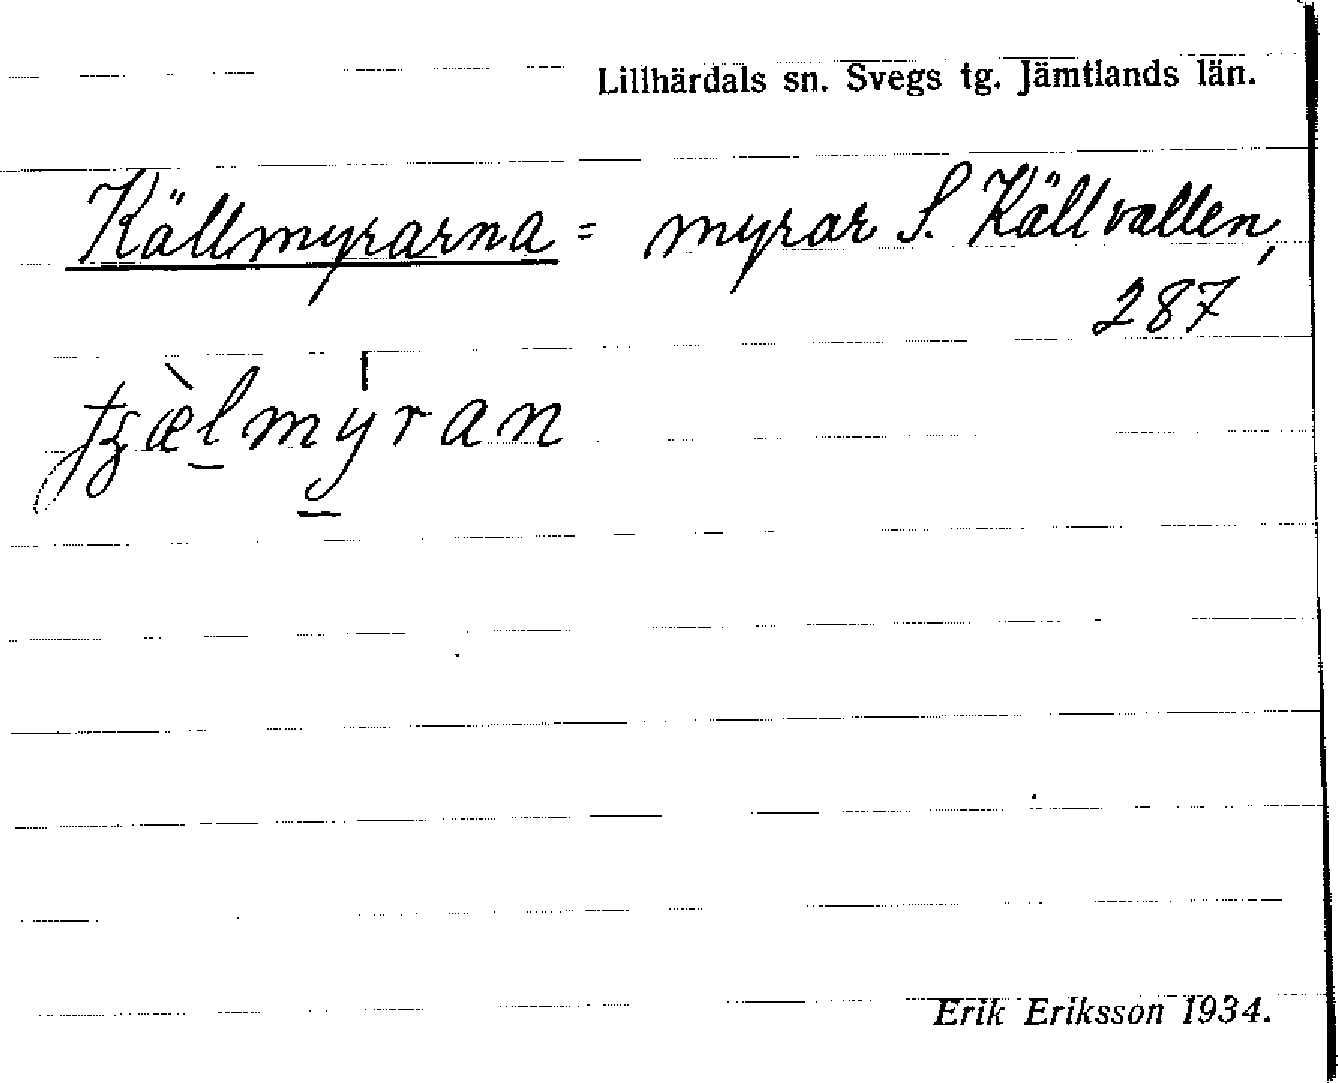 Lillhärdals sn. Svegs tg. Jämtlands län.
Källmyrarna = myrar S. Källvallen,
287
tʒæ̀l̲my̲ran
Erik Eriksson 1934.